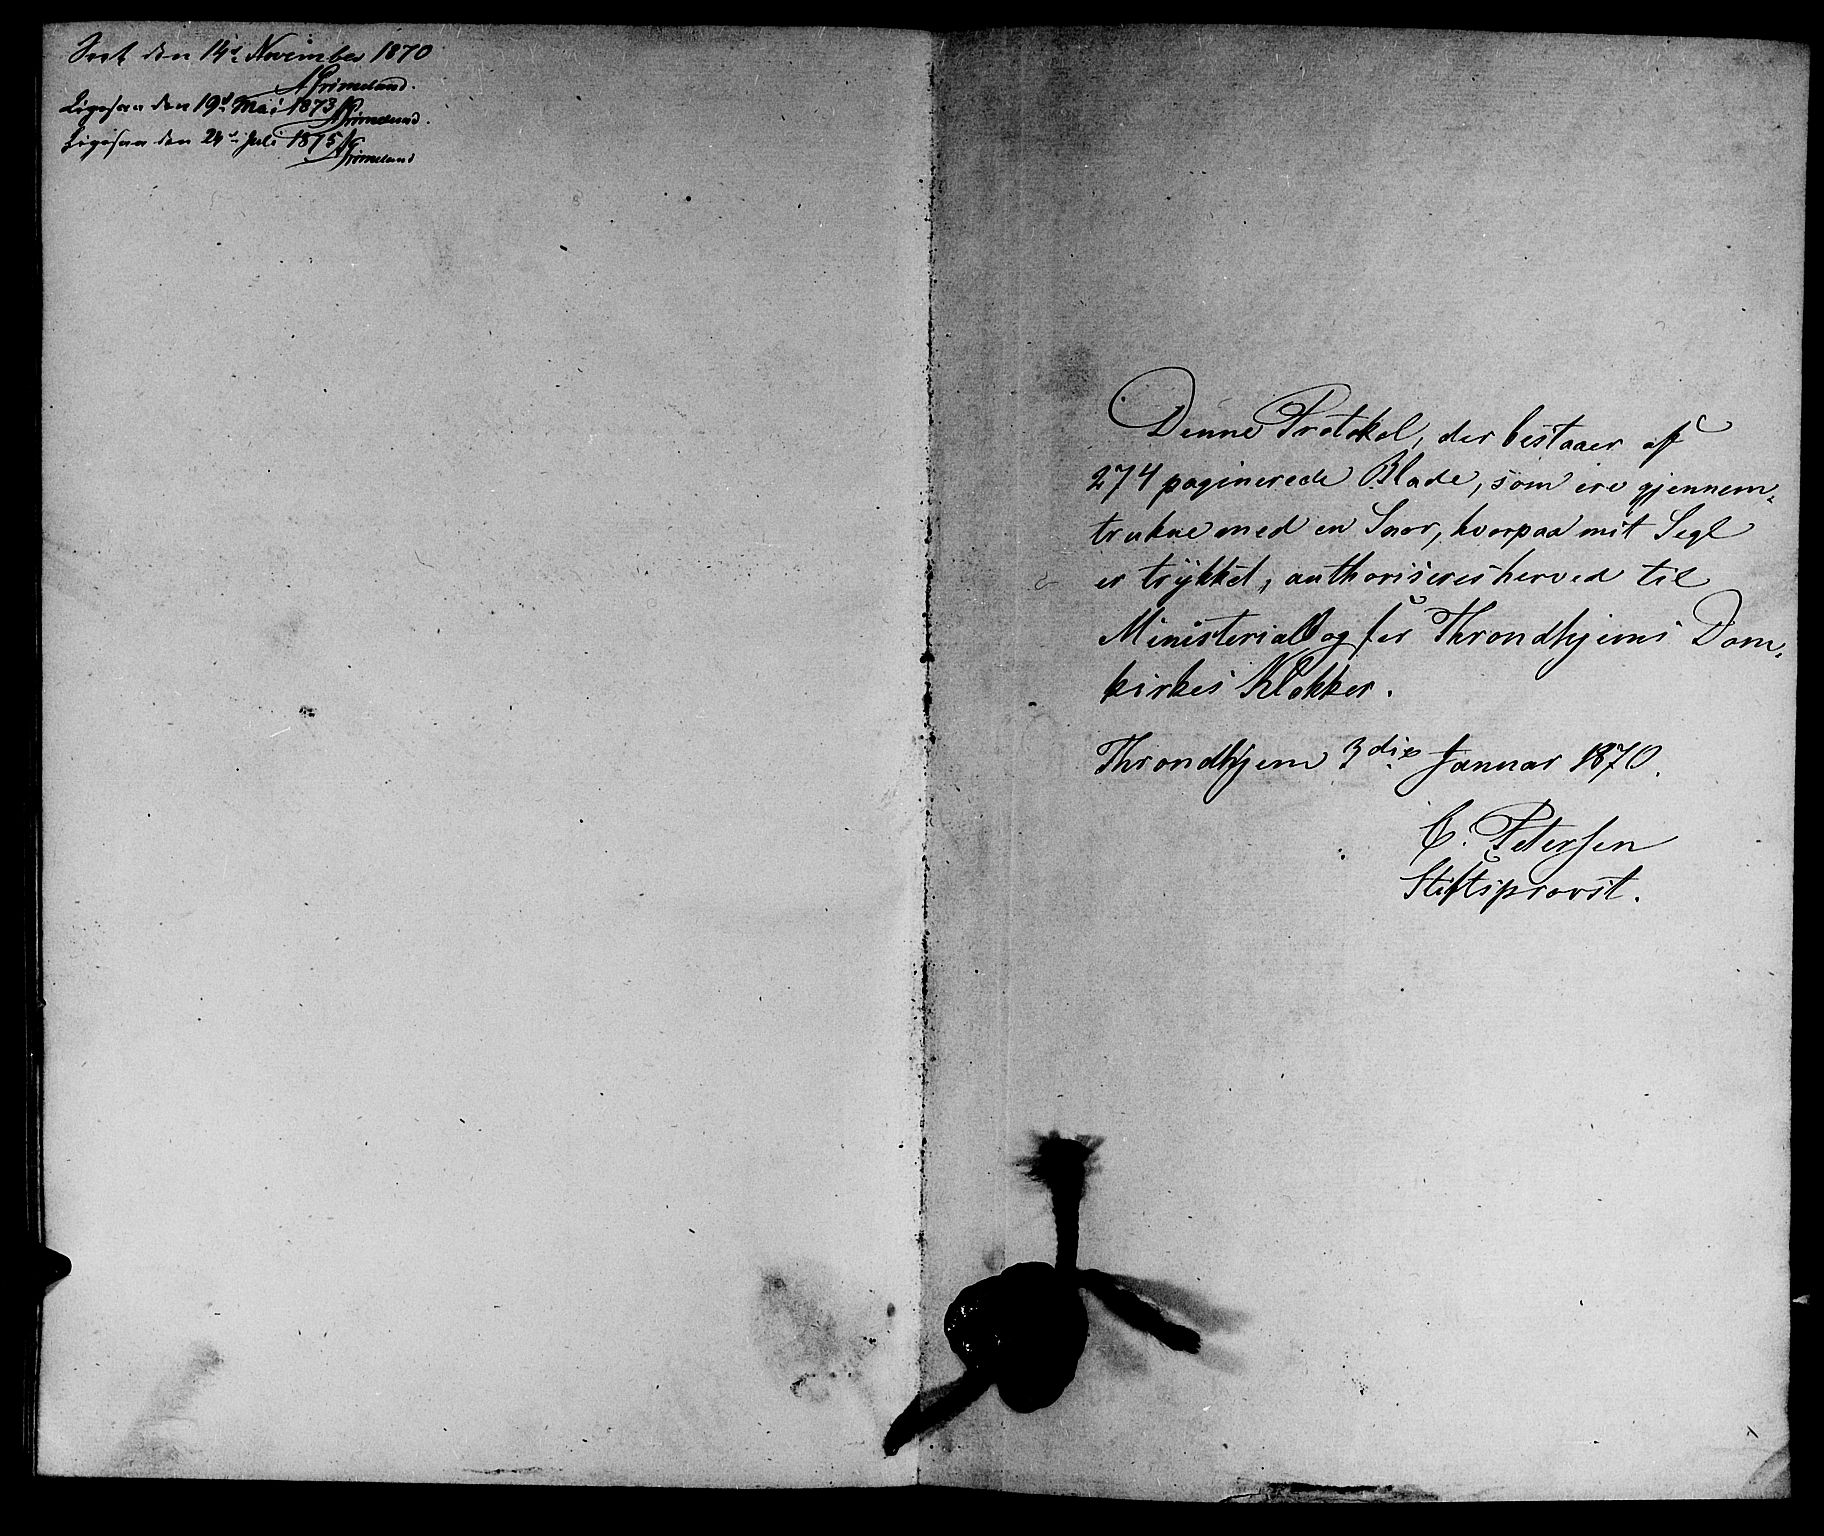 Seet den 14de November 1870
A Grimelund.
Ligesaa den 19de Mai 1873 AGrimelund.
Ligesaa den 24de Juli 1875 AGrimelund
Denne Protokol, der bestaaer af
274 paginerede Blade, som ere gjennem-
trukne med en Snor, hvorpaa mit Segl
er trykket, authoriseres herved til
Ministerialbog for Throndhjems Dom-
kirkes Klokker.
Throndhjem 3die Januar 1870.
C. Petersen
Stiftsprovst.